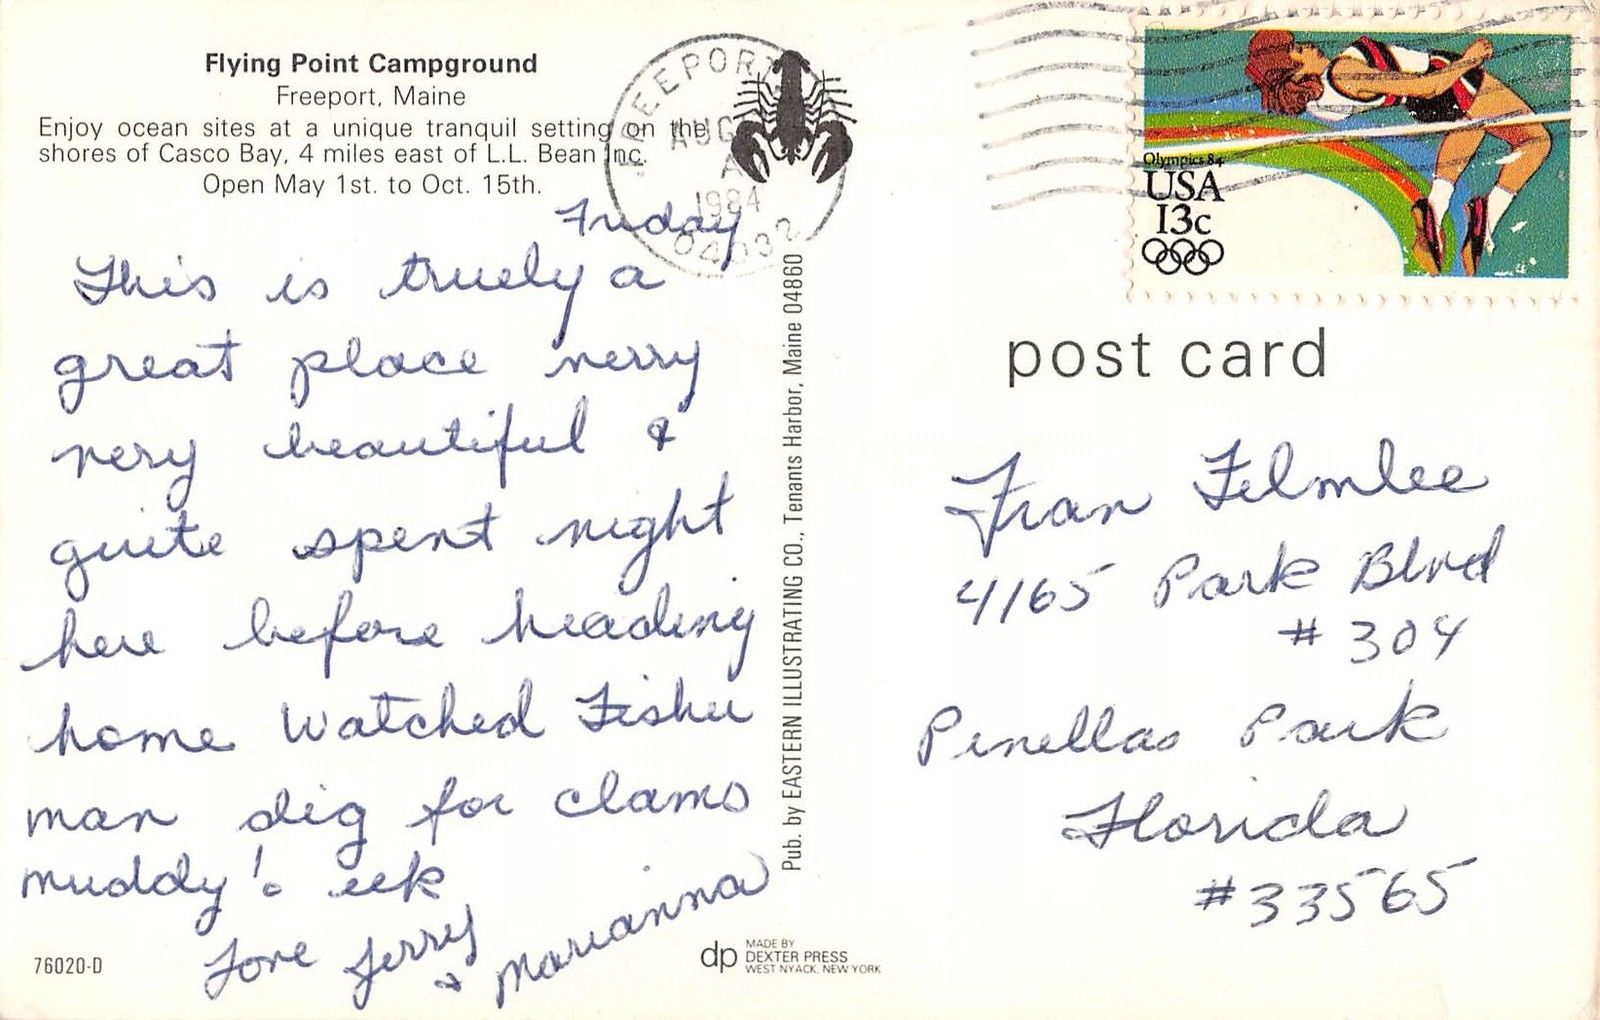 Flying Point Campground
Freeport, Maine
Enjoy ocean sites at a unique tranquil setting on the
shores of Casco Bay, 4 miles east of L.L. Bean Inc.
Open May 1st. to Oct. 15th.
FREEPORT
AUG
A
1984
04032
Olympics 84
USA
13c
Friday
This is truely a
great place verry
very beautiful &
quite spent night
here before heading
home Watched Fisher
man dig for clams
muddy! eek
Love Jerry
& Marianna
76020-D
Pub. by EASTERN ILLUSTRATING CO., Tenants Harbor, Maine 04860
dp MADE BY
DEXTER PRESS
WEST NYACK, NEW YORK
post card
Fran Felmlee
4165 Park Blvd
# 304
Pinellas Park
Florida
#33565